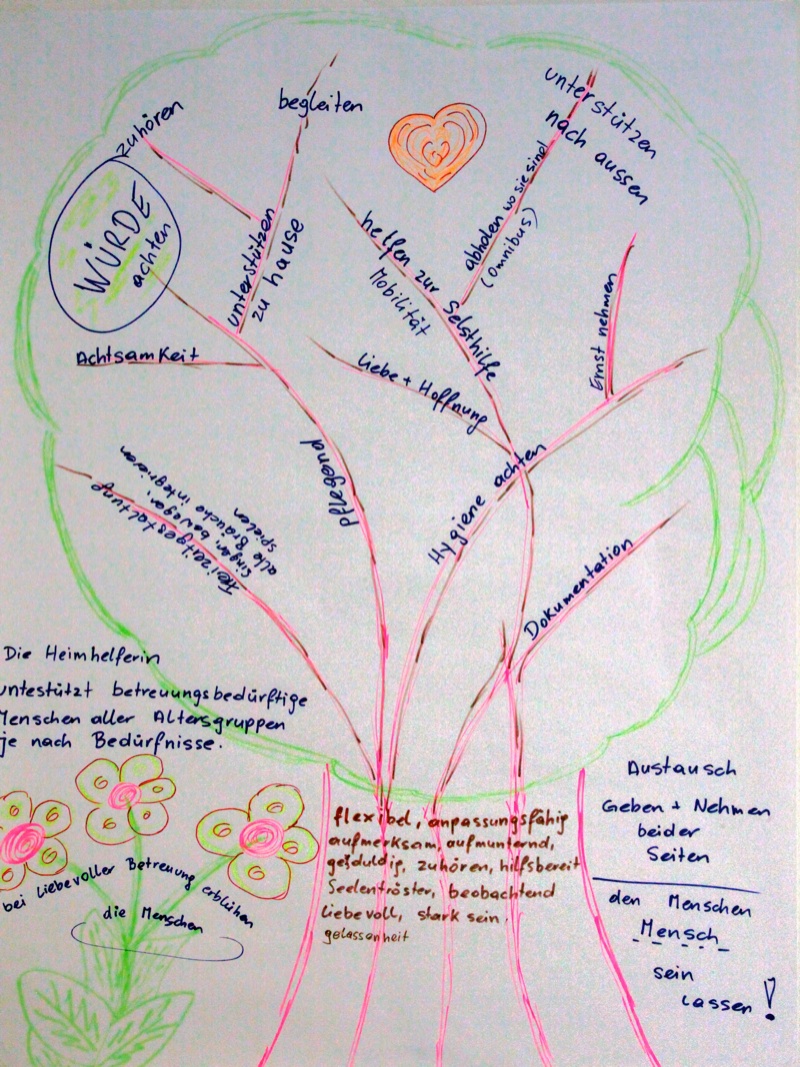 zuhören
begleiten
unterstützen
nach aussen
abholen wo sie sind
(Omnibus)
WÜRDE
achten
unterstützen
zu hause
helfen zur Selsthilfe
Mobilität
Ernst nehmen
Achtsamkeit
Liebe + Hoffnung
pflegend
Hygiene achten
Freizeitgestaltung
singen, bewegen,
alle Bräuche integrieren
spielen
Dokumentation
Die Heimhelferin
untestützt betreuungsbedürftige
Menschen aller Altersgruppen
je nach Bedürfnisse.
bei liebevoller Betreuung erblühen
die Menschen
flexibel, anpassungsfähig
aufmerksam, aufmunternd,
geduldig, zuhören, hilfsbereit
Seelentröster, beobachtend
liebevoll, stark sein,
gelassenheit
Austausch
Geben + Nehmen
beider
Seiten
den Menschen
Mensch
sein
lassen!